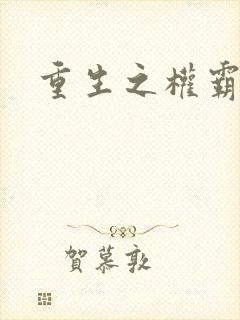 重生之權霸
賀慕敦